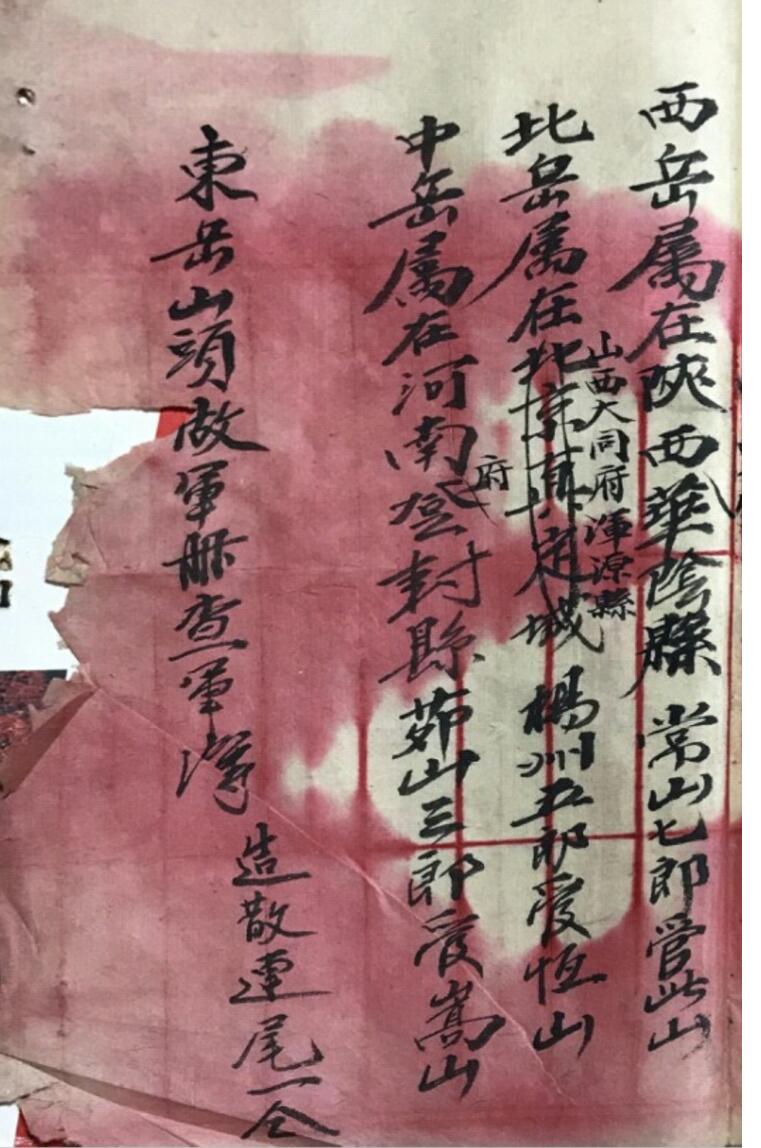 西岳属在陝西華陰縣 常山七郎管此山
北岳属在北京真定城 楊州五郎爱恆山
山西大同府渾源縣
中岳属在河南登封縣 茆山三郎爱嵩山
府
東岳山頭做軍册查軍
造散連尾一仝